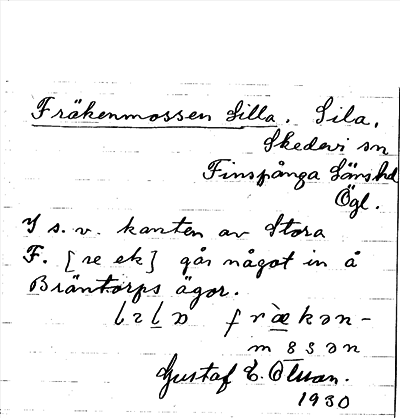 Fräkenmossen Lilla. Sila,
Skedevi sn
Finspånga Läns hd
Ögl.
I s.v. kanten av Stora
F. [se ek] går något in å
Bräntorps ägor.
frækən-
mosən
Gustaf E. Olsson.
1930